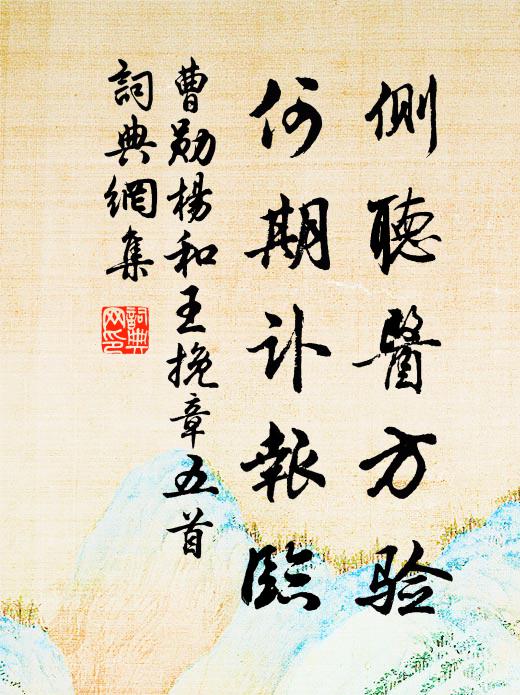 側聽醫方验
何期訃報臨
曹勛楊和王挽章五首
詞典網集
詞典网印